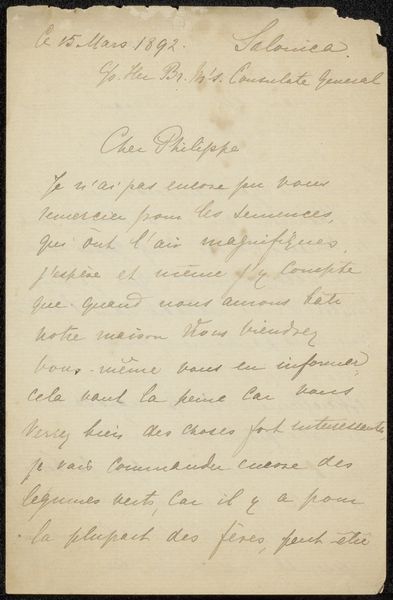 Ce 15 Mars 1892. Salonica.
C/o. Her Br. M's. Consulate General
Cher Philippe
Je n'ai pas encore pu vous
remercier pour les semences,
qui ont l'air magnifiques,
j'espère et même j'y compte
que quand nous aurons bâti
notre maison Vous viendrez
Vous-même vous en informer,
cela vaut la peine car vous
verrez bien des choses fort interessantes,
je vais commander encore des
légumes verts, car il y a pour
la plupart des fèves, peut être